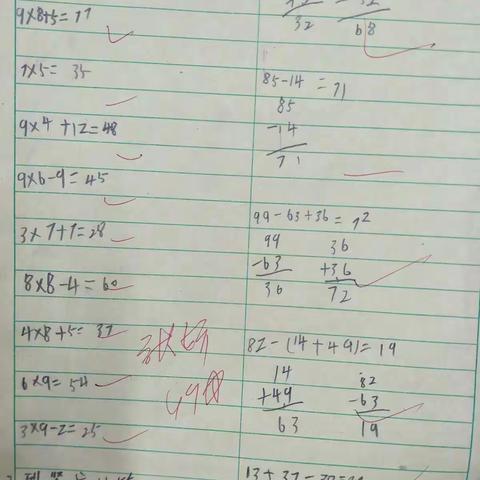 9×8+5=77
7×5=35
9×4+12=48
9×6-9=45
3×7+7=28
8×8-4=60
4×8+5=37
6×9=54
3×9-2=25
32 68
85-14=71
85
-14
71
99-63+36=72
99 36
-63 +36
36 72
82-(14+49)=19
14 82
+49 -63
63 19